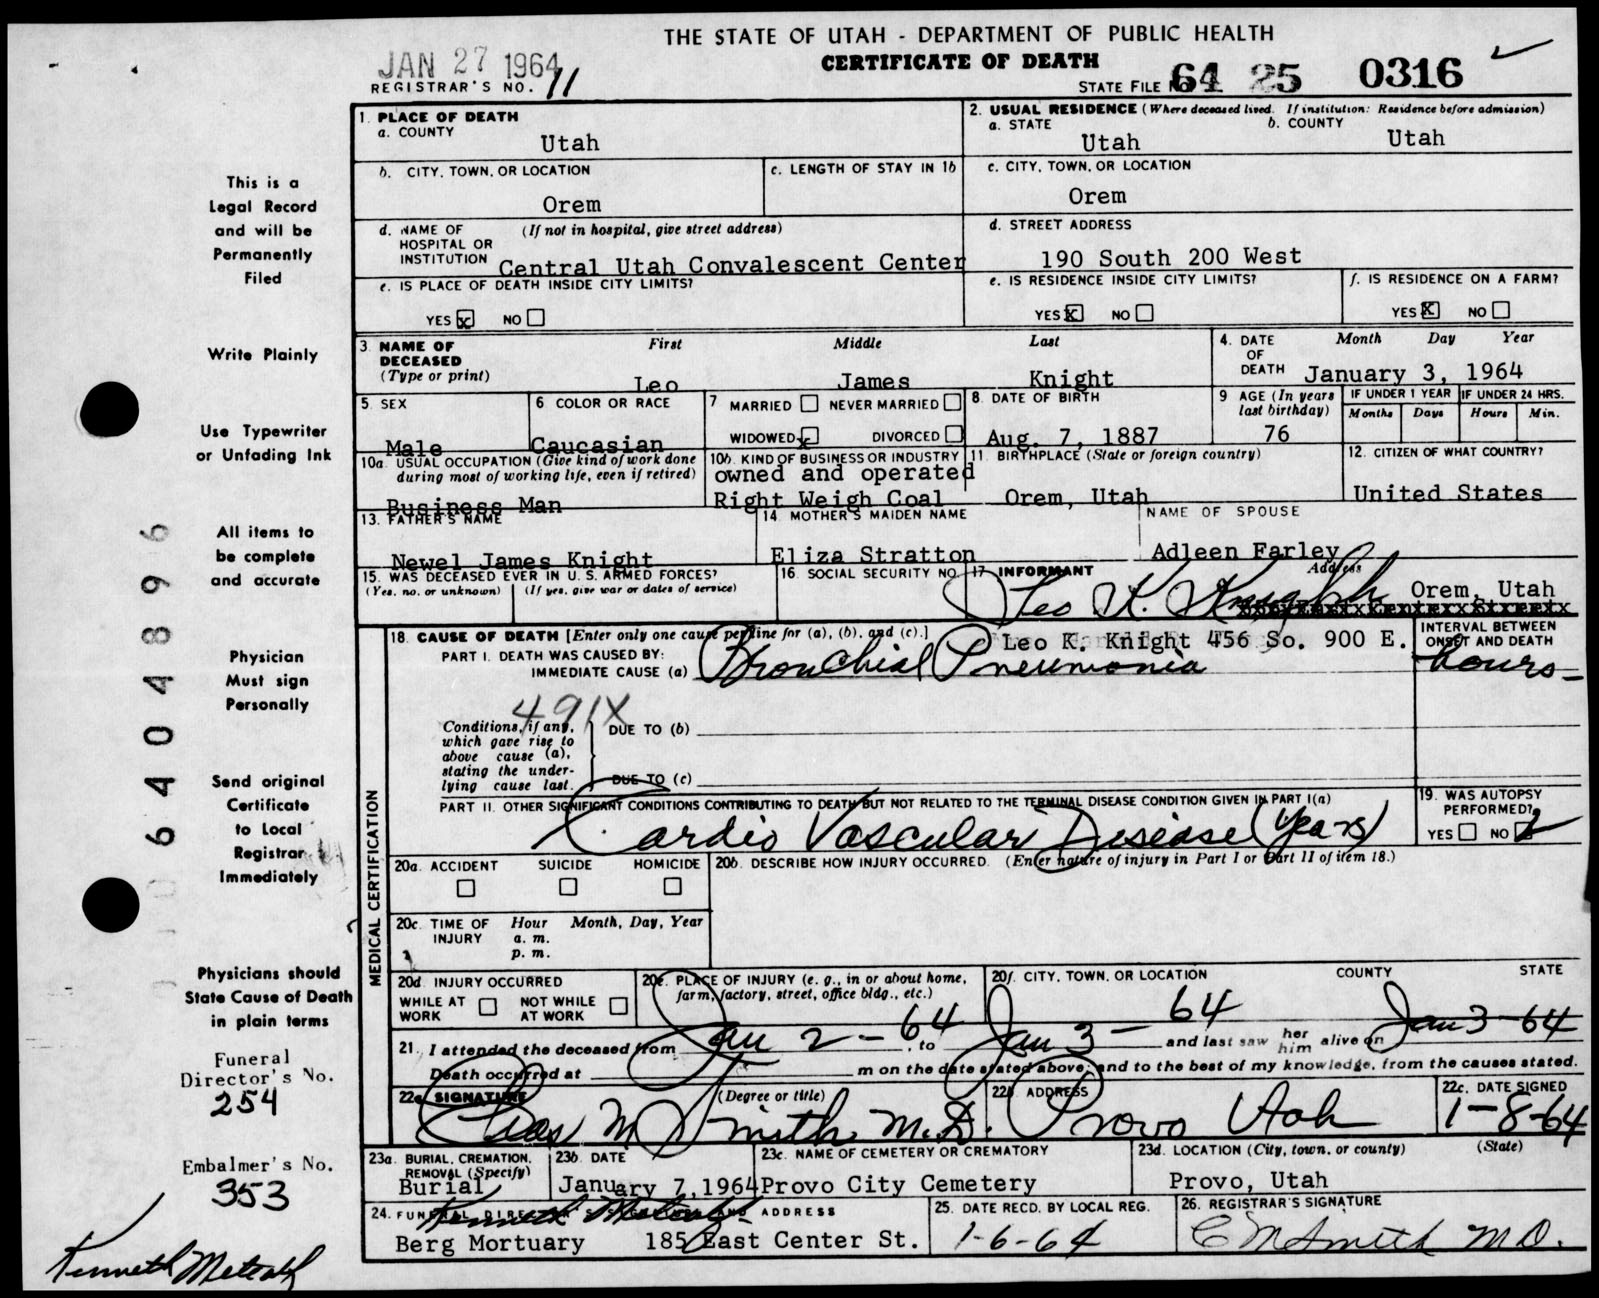 THE STATE OF UTAH - DEPARTMENT OF PUBLIC HEALTH
CERTIFICATE OF DEATH
JAN 27 1964
REGISTRAR'S NO. 11
STATE FILE 64 25 0316
This is a
Legal Record
and will be
Permanently
Filed
Write Plainly
Use Typewriter
or Unfading Ink
All items to
be complete
and accurate
Physician
Must sign
Personally
Send original
Certificate
to Local
Registrar
Immediately
Physicians should
State Cause of Death
in plain terms
Funeral
Director's No.
254
Embalmer's No.
353
Kenneth Metcalf
6404896
1. PLACE OF DEATH
a. COUNTY
Utah
2. USUAL RESIDENCE (Where deceased lived. If institution: Residence before admission)
a. STATE
Utah
b. COUNTY
Utah
b. CITY, TOWN, OR LOCATION
Orem
c. LENGTH OF STAY IN 1b
c. CITY, TOWN, OR LOCATION
Orem
d. NAME OF HOSPITAL OR INSTITUTION
(If not in hospital, give street address)
Central Utah Convalescent Center
d. STREET ADDRESS
190 South 200 West
e. IS PLACE OF DEATH INSIDE CITY LIMITS?
YES X NO
e. IS RESIDENCE INSIDE CITY LIMITS?
YES X NO
f. IS RESIDENCE ON A FARM?
YES X NO
3. NAME OF DECEASED
(Type or print)
First Middle Last
Leo James Knight
4. DATE OF DEATH
Month Day Year
January 3, 1964
5. SEX
Male
6. COLOR OR RACE
Caucasian
7. MARRIED NEVER MARRIED
WIDOWED x DIVORCED
8. DATE OF BIRTH
Aug. 7, 1887
9. AGE (In years last birthday)
76
IF UNDER 1 YEAR
Months Days
IF UNDER 24 HRS.
Hours Min.
10a. USUAL OCCUPATION (Give kind of work done during most of working life, even if retired)
Business Man
10b. KIND OF BUSINESS OR INDUSTRY
owned and operated
Right Weigh Coal
11. BIRTHPLACE (State or foreign country)
Orem, Utah
12. CITIZEN OF WHAT COUNTRY?
United States
13. FATHER'S NAME
Newel James Knight
14. MOTHER'S MAIDEN NAME
Eliza Stratton
NAME OF SPOUSE
Adleen Farley
15. WAS DECEASED EVER IN U. S. ARMED FORCES?
(Yes, no, or unknown) (If yes, give war or dates of service)
16. SOCIAL SECURITY NO.
17. INFORMANT
Address
Leo K. Knight
Orem, Utah
Leo K. Knight 456 So. 900 E.
MEDICAL CERTIFICATION
18. CAUSE OF DEATH [Enter only one cause per line for (a), (b), and (c).]
PART I. DEATH WAS CAUSED BY:
IMMEDIATE CAUSE (a) Bronchial Pneumonia
INTERVAL BETWEEN ONSET AND DEATH
hours
491X
Conditions, if any, which gave rise to above cause (a), stating the underlying cause last.
DUE TO (b)
DUE TO (c)
PART II. OTHER SIGNIFICANT CONDITIONS CONTRIBUTING TO DEATH BUT NOT RELATED TO THE TERMINAL DISEASE CONDITION GIVEN IN PART I(a)
Cardio Vascular Disease (years)
19. WAS AUTOPSY PERFORMED?
YES NO
20a. ACCIDENT SUICIDE HOMICIDE
20b. DESCRIBE HOW INJURY OCCURRED. (Enter nature of injury in Part I or Part II of item 18.)
20c. TIME OF INJURY
Hour Month, Day, Year
a. m.
p. m.
20d. INJURY OCCURRED
WHILE AT WORK NOT WHILE AT WORK
20e. PLACE OF INJURY (e. g., in or about home, farm, factory, street, office bldg., etc.)
20f. CITY, TOWN, OR LOCATION COUNTY STATE
21. I attended the deceased from Jan 2 - 64, to Jan 3 - 64 and last saw her him alive on Jan 3-64
Death occurred at m on the date stated above; and to the best of my knowledge, from the causes stated.
22a. SIGNATURE (Degree or title)
Chas M Smith M.D.
22b. ADDRESS
Provo Utah
22c. DATE SIGNED
1-8-64
23a. BURIAL, CREMATION, REMOVAL (Specify)
Burial
23b. DATE
January 7, 1964
23c. NAME OF CEMETERY OR CREMATORY
Provo City Cemetery
23d. LOCATION (City, town, or county) (State)
Provo, Utah
24. FUNERAL DIRECTOR'S SIGNATURE AND ADDRESS
Kenneth Metcalf
Berg Mortuary 185 East Center St.
25. DATE RECD. BY LOCAL REG.
1-6-64
26. REGISTRAR'S SIGNATURE
C M Smith M.D.